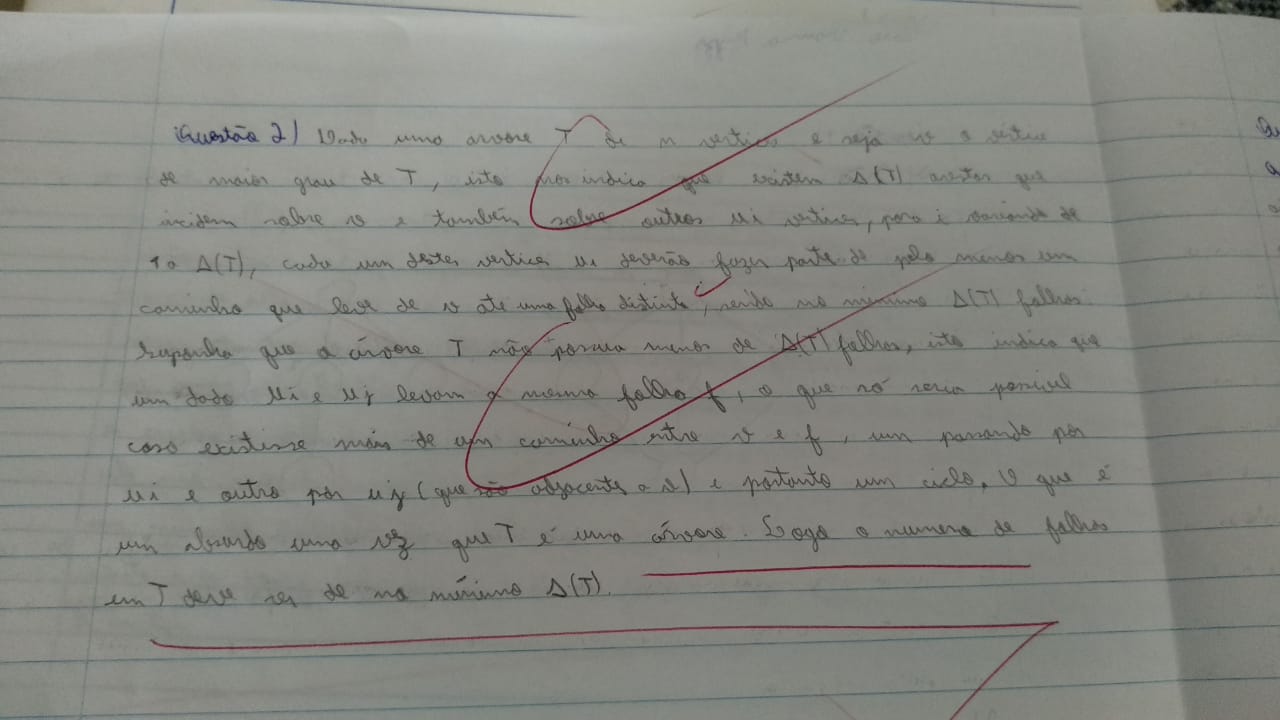 Questão 2) Dada uma arvore T de n vertices e seja v o vértice
de maior grau de T, isto nos indica que existem Δ(T) arestas que
incidem sobre v e também sobre outros ui vertices, para i variando de
1 a Δ(T), cada um destes vertices ui deverão fazer parte de pelo menos um
caminho que leve de v até uma folha distinta, sendo no minimo Δ(T) folhas.
Suponha que a árvore T não possua menos de Δ(T) folhas, isto indica que
um dado ui e uj levam a mesma folha f, o que só seria possivel
caso existisse mais de um caminho entre v e f, um passando por
ui e outro por uj (que são adjacentes a v) e portanto um ciclo, O que é
um absurdo uma vez que T é uma árvore. Logo o numero de folhas
em T deve ser de no mínimo Δ(T).